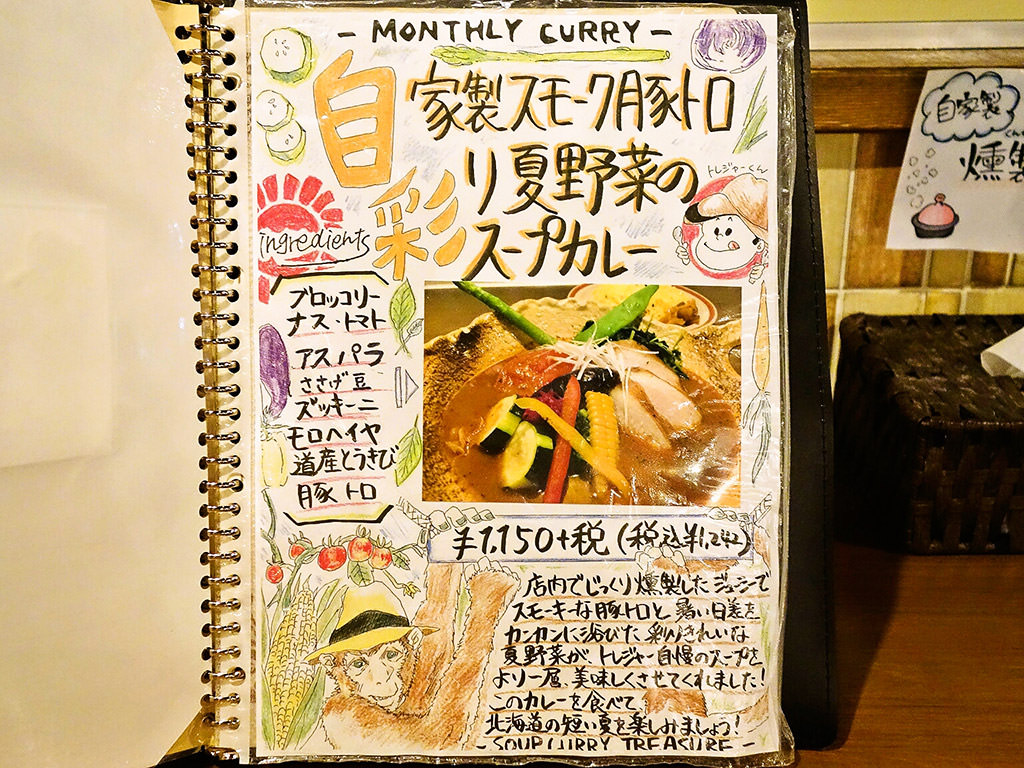 - MONTHLY CURRY -
自家製スモーク豚トロ
彩り夏野菜の
スープカレー
トレジャーくん
ingredients
ブロッコリー
ナス・トマト
アスパラ
ささげ豆
ズッキーニ
モロヘイヤ
道産とうきび
豚トロ
¥1,150+税(税込¥1,242)
店内でじっくり燻製したジューシーで
スモーキーな豚トロと暑い日差を
カンカンに浴びた彩りきれいな
夏野菜がトレジャー自慢のスープを
より一層、美味しくさせてくれました!
このカレーを食べて
北海道の短い夏を楽しみましょう!
- SOUP CURRY TREASURE -
自家製
くん
燻製